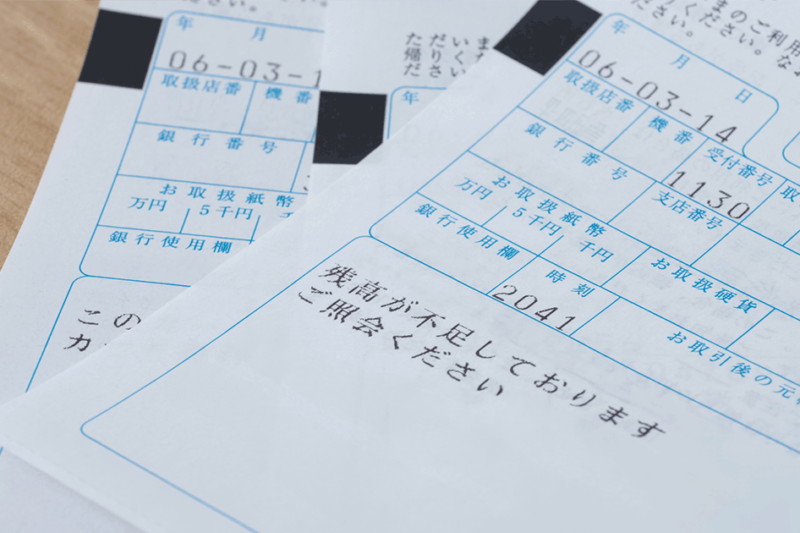 年 月
06-03-1
取扱店番 機番
銀行番号
お取扱紙幣
万円 5千円 千
銀行使用欄
この
カ
また
いく
だりさ
た帰だ
年
まのご利用
ください。な
ださい。
年 月 日
06-03-14
取扱店番 機番 受付番号 取
1130
銀行番号 支店番号
お取扱紙幣 お取扱硬貨
万円 5千円 千円
銀行使用欄 時刻 お取引後の元
2041
残高が不足しております
ご照会ください